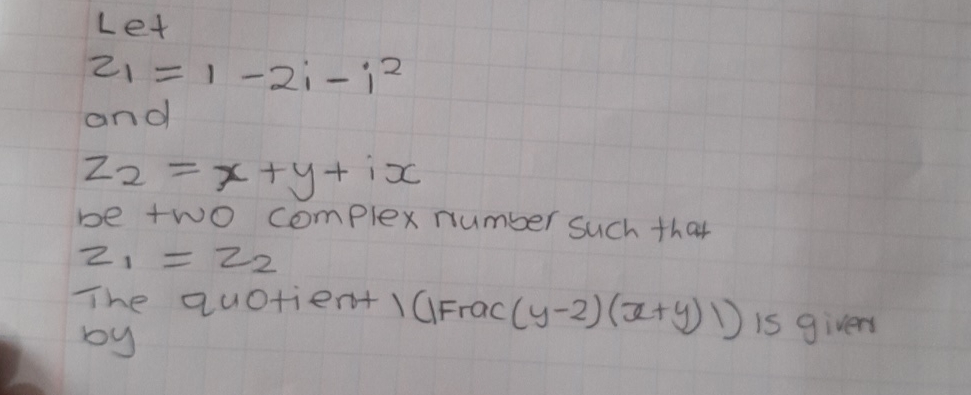 Let
z₁ = 1 - 2i - i²
and
z₂ = x + y + ix
be two complex number such that
z₁ = z₂
The quotient \(\Frac(y-2)(x+y)\) is given
by